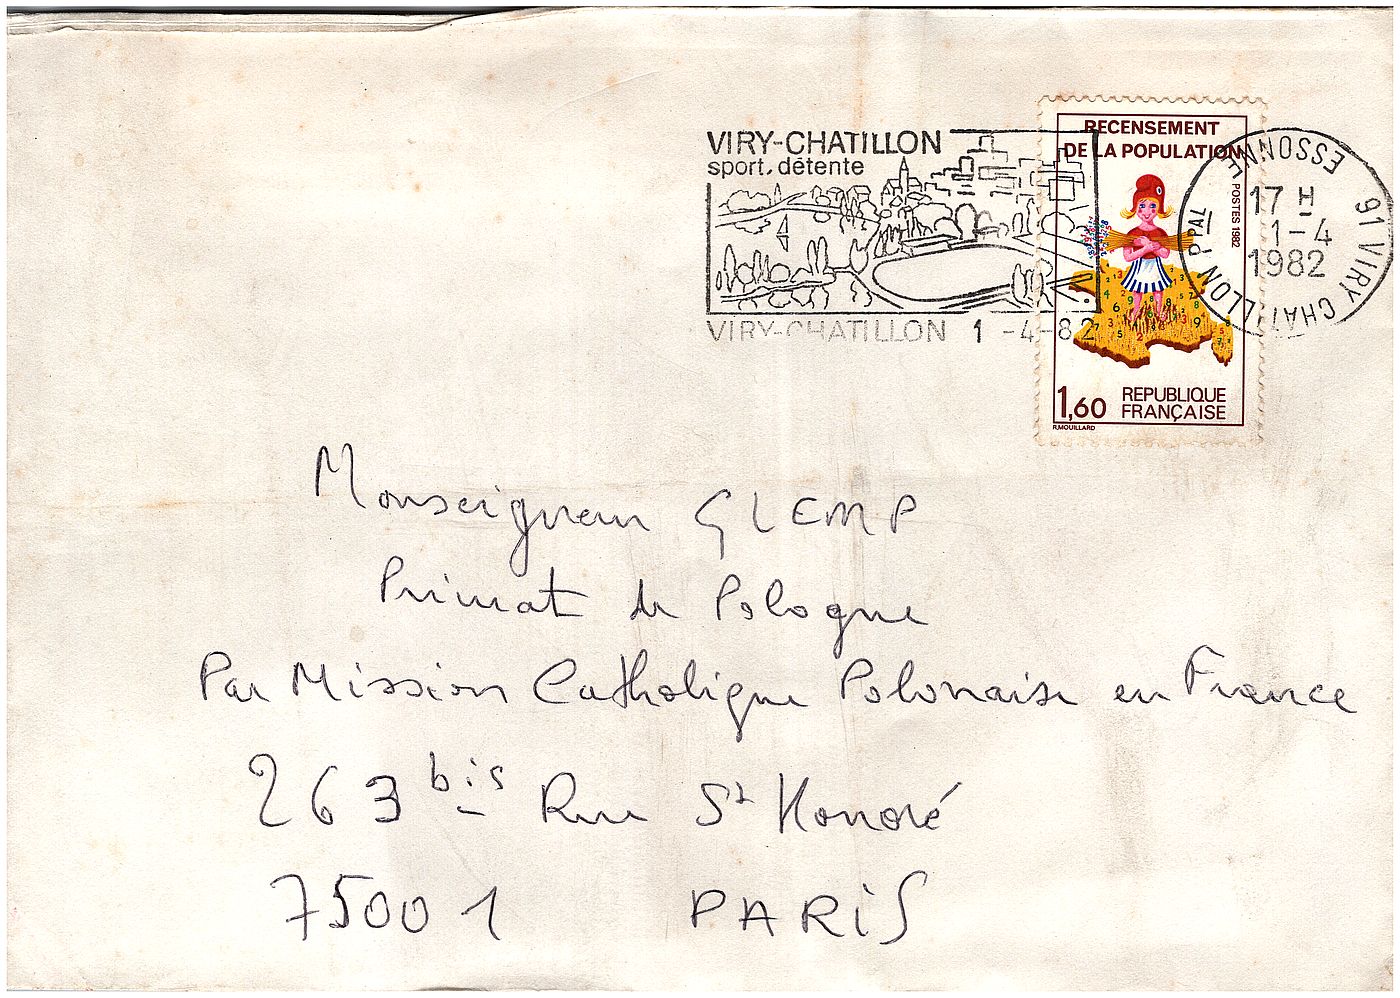 VIRY-CHATILLON
sport, détente
VIRY-CHATILLON 1 -4-82
RECENSEMENT
DE LA POPULATION
POSTES 1982
1,60 REPUBLIQUE
FRANÇAISE
R.MOUILLARD
91 VIRY CHATILLON PPAL
ESSONNE
17 H
1-4
1982
Monseigneur GLEMP
Primat de Pologne
Par Mission Catholique Polonaise en France
263 bis Rue St Honoré
75001 PARIS